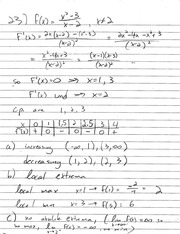 23) f(x) = (x²-3)/(x-2), x≠2
f'(x) = (2x(x-2) - (x²-3))/(x-2)² = (2x²-4x-x²+3)/(x-2)²
= (x²-4x+3)/(x-2)² = (x-1)(x-3)/(x-2)²
so f'(x)=0 ⇒ x=1, 3
f'(x) und ⇒ x=2
c.p. are 1, 2, 3
x | 0 | 1 | 1.5 | 2 | 2.5 | 3 | 4
f'(x) | + | 0 | - | | - | 0 | +
a) increasing (-∞, 1), (3, ∞)
decreasing (1, 2), (2, 3)
b) local extrema
local max x=1 → f(1) = -2/-1 = 2
local min x=3 → f(3) = 6
c) no absolute extrema,